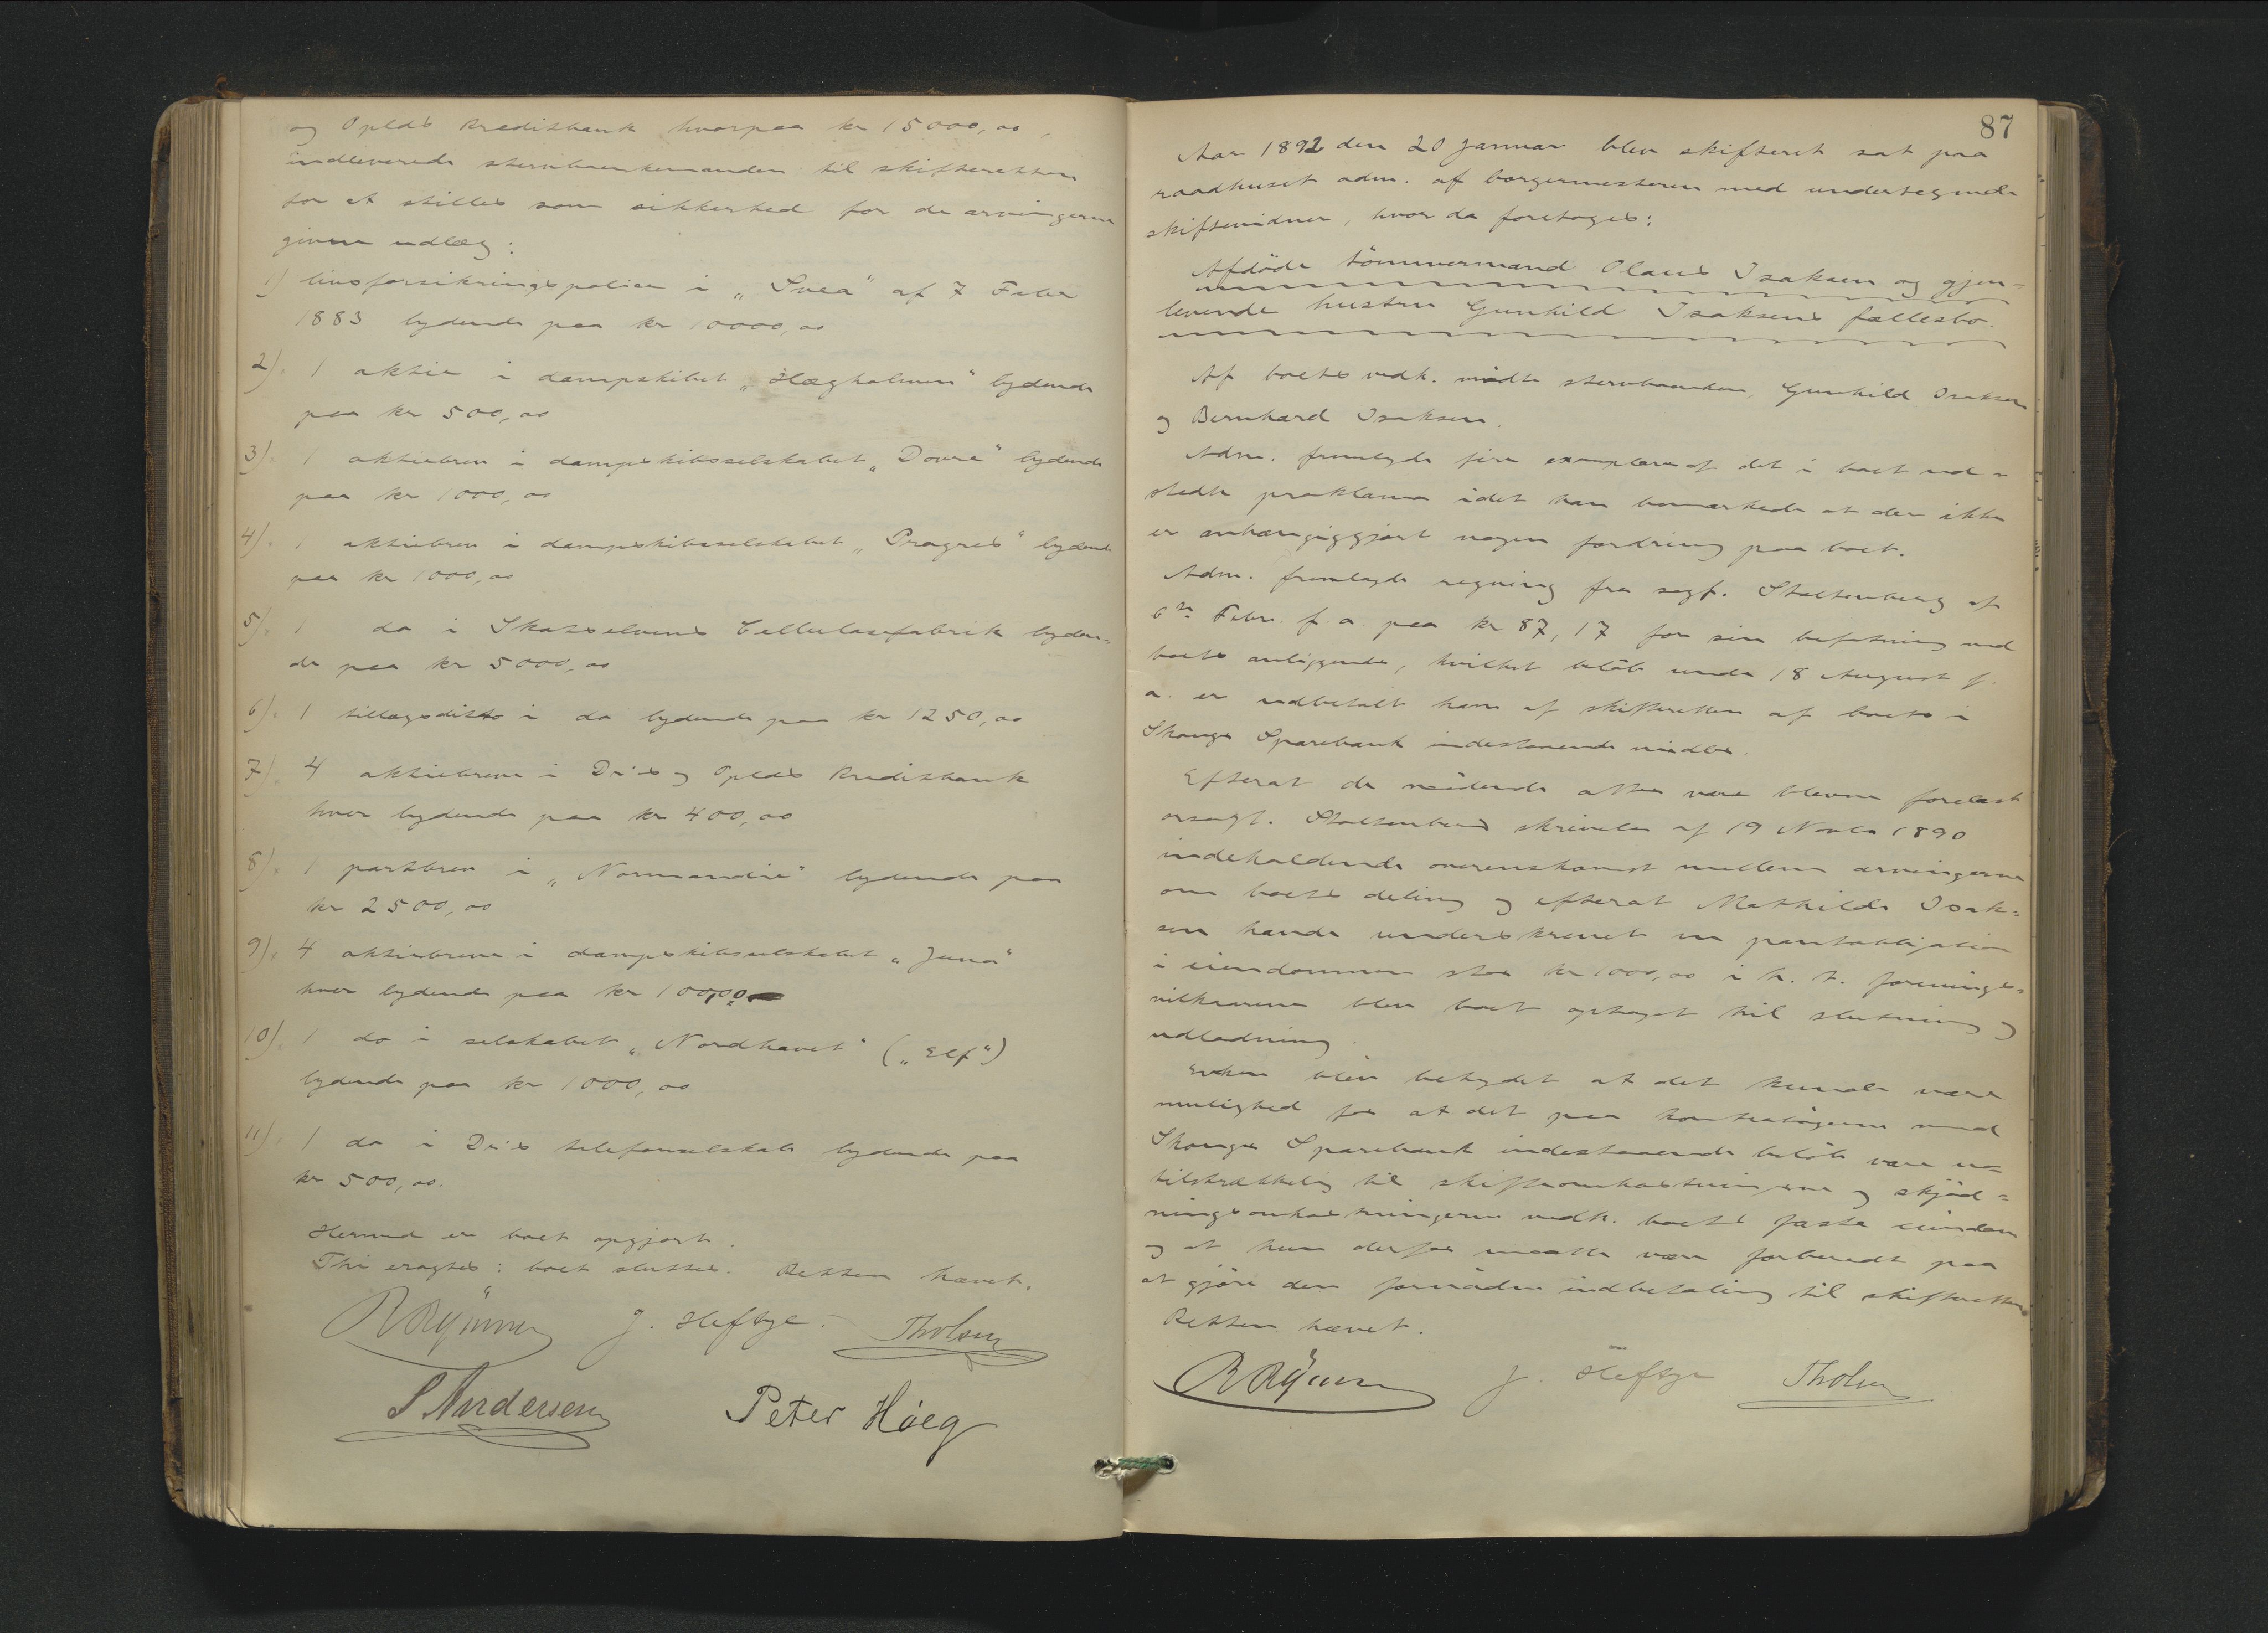 og Oplds Kreditbank hvorpaa kr 15000,00,
indleverede stervboenkemanden til skifteretten
for at stilles som sikkerhed for de arvingerne
givne udlæg:
1) livsforsikringspolice i „Svea" af 7 Febr
1883 lydende paa kr 10000,00
2). 1 aktie i dampskibet „Hægholmen" lydende
paa kr 500,00
3). 1 aktiebrev i dampskibsselskabet „Dovre" lydende
paa kr 1000,00
4). 1 aktiebrev i dampskibsselskabet „Progres" lydende
paa kr 1000,00
5). 1 do i Skotselvens Cellulosefabrik lyden=
de paa kr 5000,00
6). 1 tillægsditto i do lydende paa kr 1250,00
7). 4 aktiebreve i D:s og Oplds Kreditbank
hver lydende paa kr 400,00
8). 1 partbrev i „Normandie" lydende paa
kr 2500,00
9). 4 aktiebreve i dampskibsselskabet „Juno"
hver lydende paa kr
10). 1 do i selskabet „Nordhavet" („Elf")
lydende paa kr 1000,00
11). 1 do i D:s telefonselskab lydende paa
kr 500,00.
Hermed er boet opgjort.
Thi eragtes: boet sluttes. Retten hævet.
J. Heftye. Tholsen
S Andersen Peter Höeg
87
Aar 1892 den 20 Januar blev skifteret sat paa
raadhuset adm. af borgermesteren med undertegnede
skiftevidner, hvor da foretoges:
Afdöde tömmermand Olaus Isaksen og gjen=
levende hustru Gunhild Isaksens fællesbo.
Af boets vedk. mödte stervboenken, Gunhild Isaksen
og Bernhard Isaksen.
Adm. fremlagde fire exemplarer af det i boet ud=
stedte proklama idet han bemærkede at der ikke
er anhængiggjort nogen fordring paa boet.
Adm. fremlagde regning fra sagf. Stoltenberg af
6te Febr. f. a. paa kr 87,17 for sin befatning med
boets anliggende, hvilket belöb under 18 August f.
a. er udbetalt ham af skifteretten af boets i
Skouger Sparebank indestaaende midler.
Efterat de mödende atter var blevne forelæst
orsagf. Stoltenbergs skrivelse af 19 Novbr 1890
indeholdende overenskomst mellem arvingerne
om boets deling og efterat Mathilde Isak=
sen havde underskrevet en pantobligation
i eiendommen stor kr 1000,00 i h. t. forenings=
vilkaarene blev boet optaget til slutning og
udlodning.
Enken blev betydet at det kunde være
mulighed for at det paa kontrabögerne med
Skouger Sparebank indestaaende belöb være u=
tilstrækkelig til skifteomkostningerne og skjöd=
ningsomkostningerne vedk. boets faste eiendom
og at hun derfor maatte være forberedt paa
at gjöre den fornödne indbetaling til skifteretten.
Retten hævet.
J. Heftye Tholsen